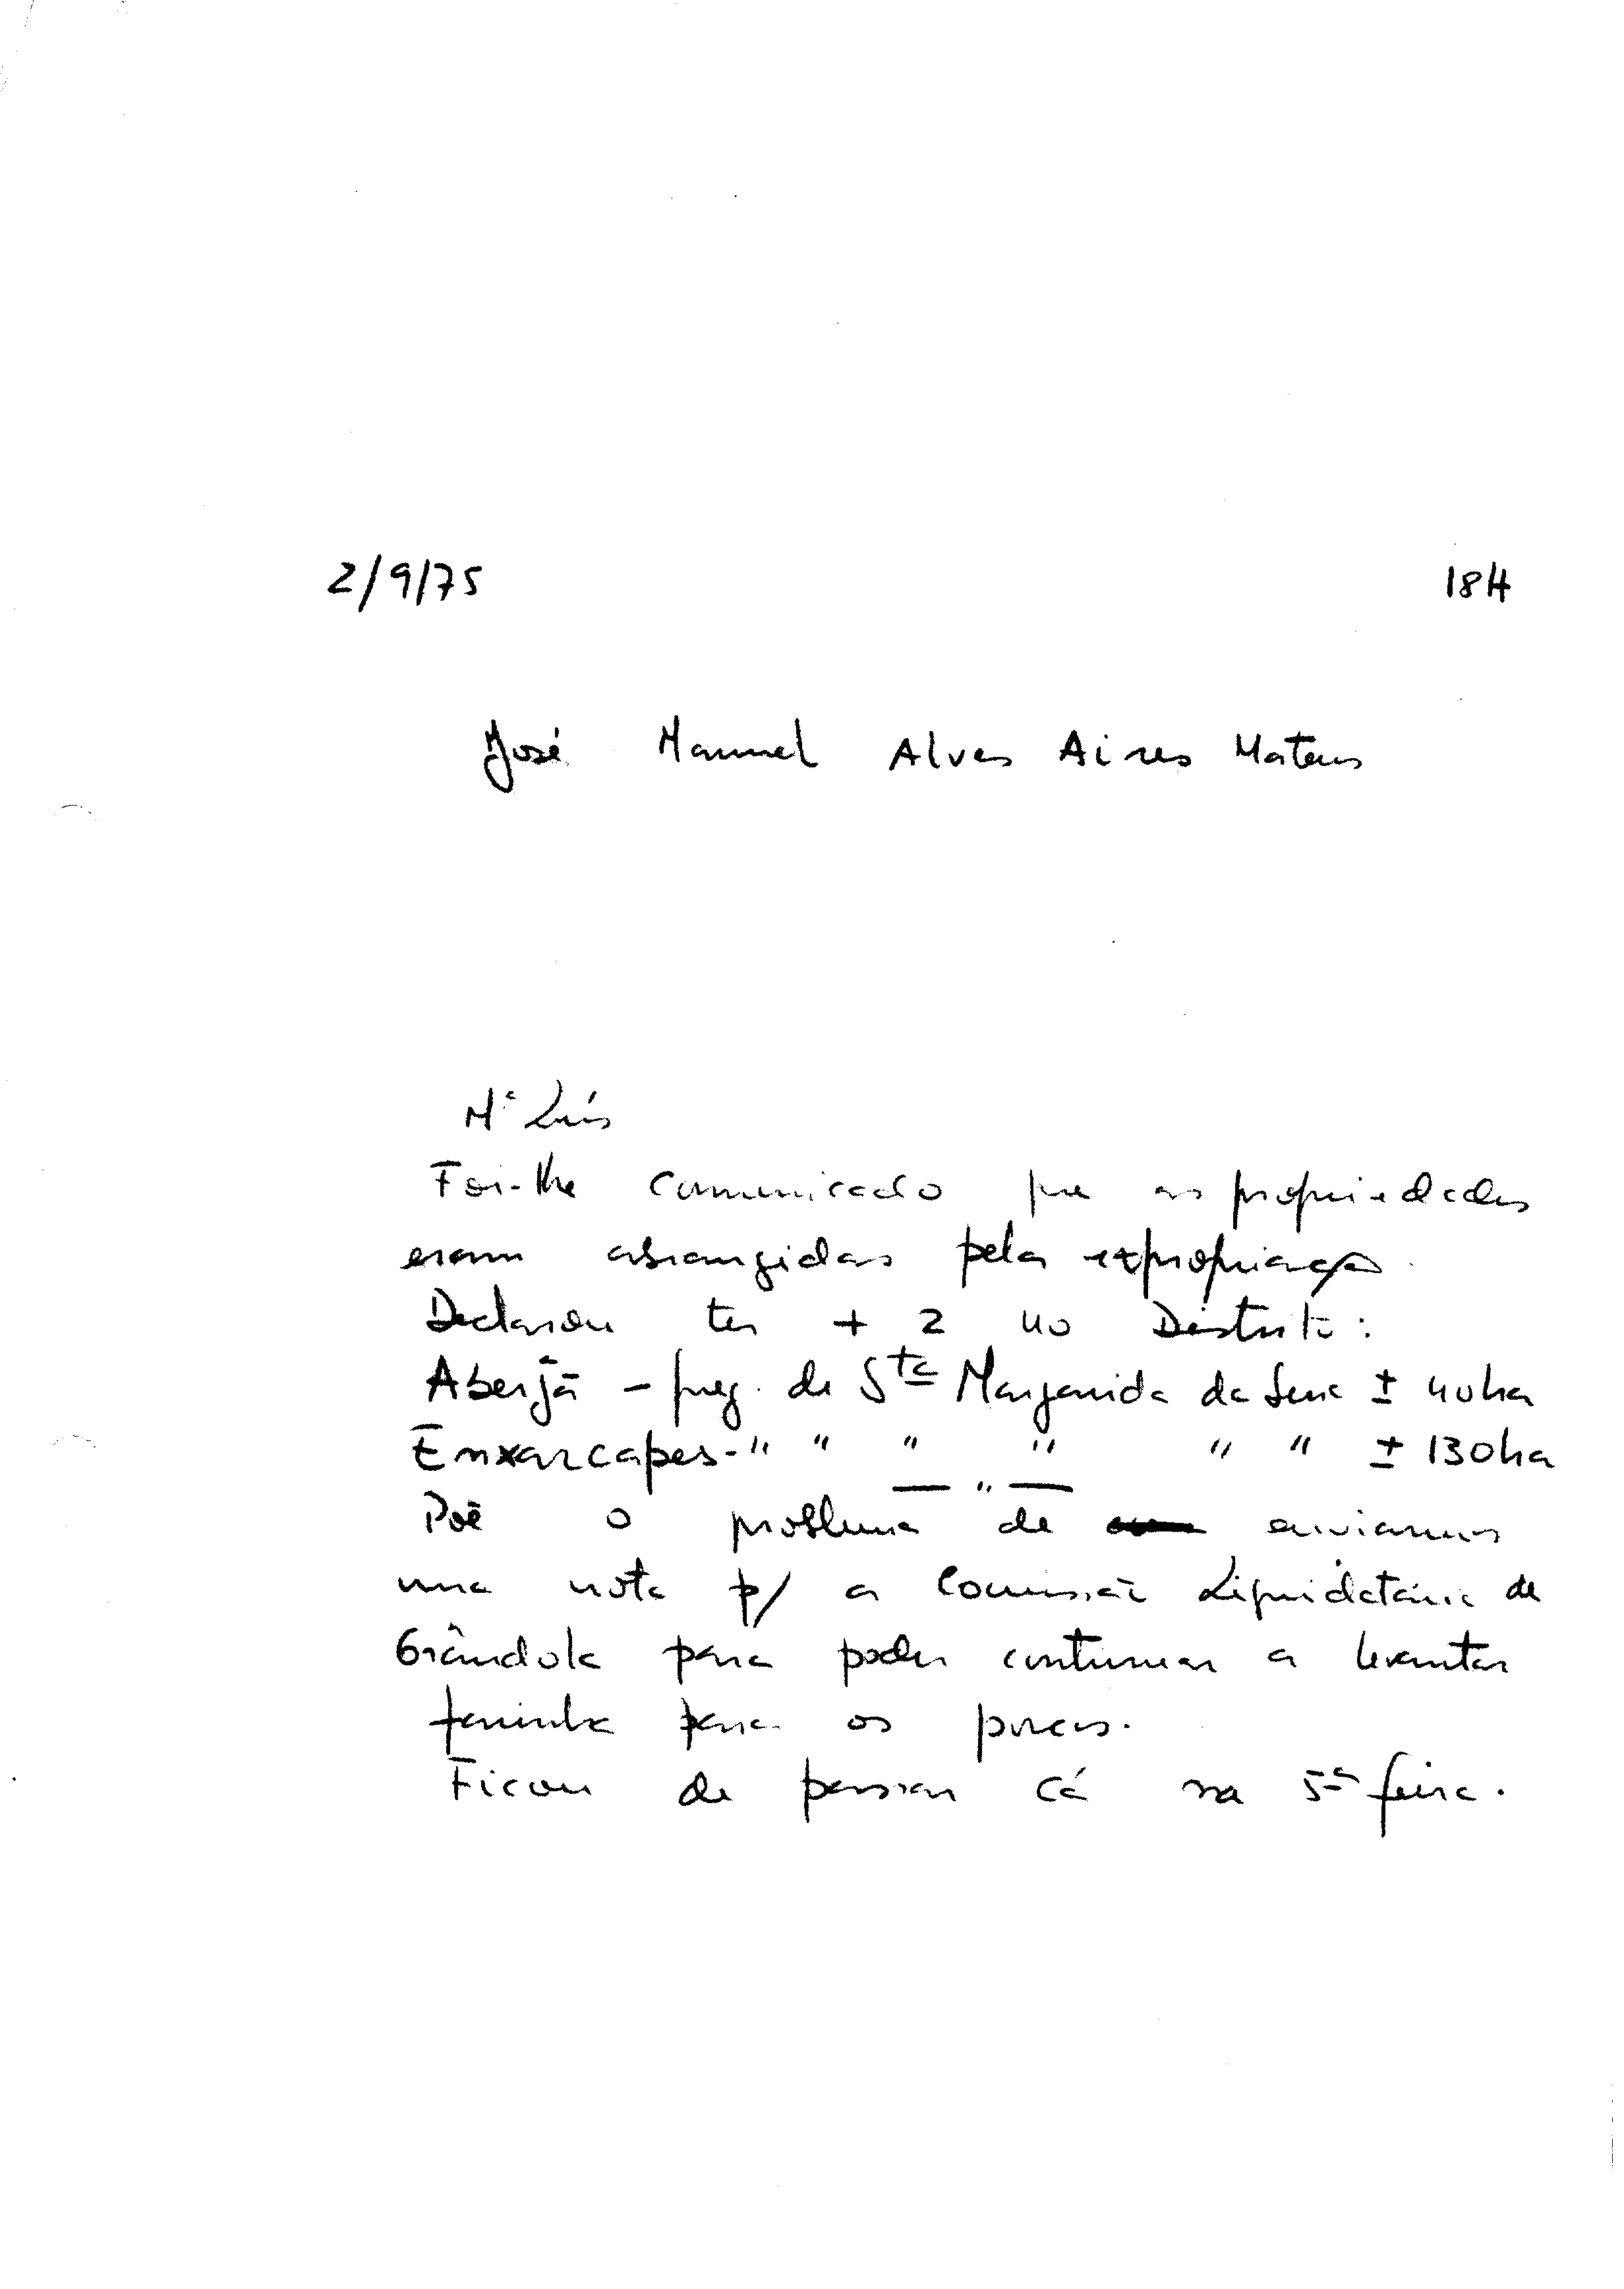 2/9/75 18H
José Manuel Alves Aires Mateus
Mª Luís
Foi-lhe comunicado que as propriedades
eram abrangidas pela expropriação.
Declarou ter + 2 no Distrito:
Aberjã - freg. de Stª Margarida da Serra ± 40ha
Enxarcapes - " " " " " " ± 130ha
— " —
Põe o problema de enviarmos
uma nota p/ a Comissão Liquidatária de
Grândola para poder continuar a levantar
farinha para os porcos.
Ficou de passar cá na 5ª feira.